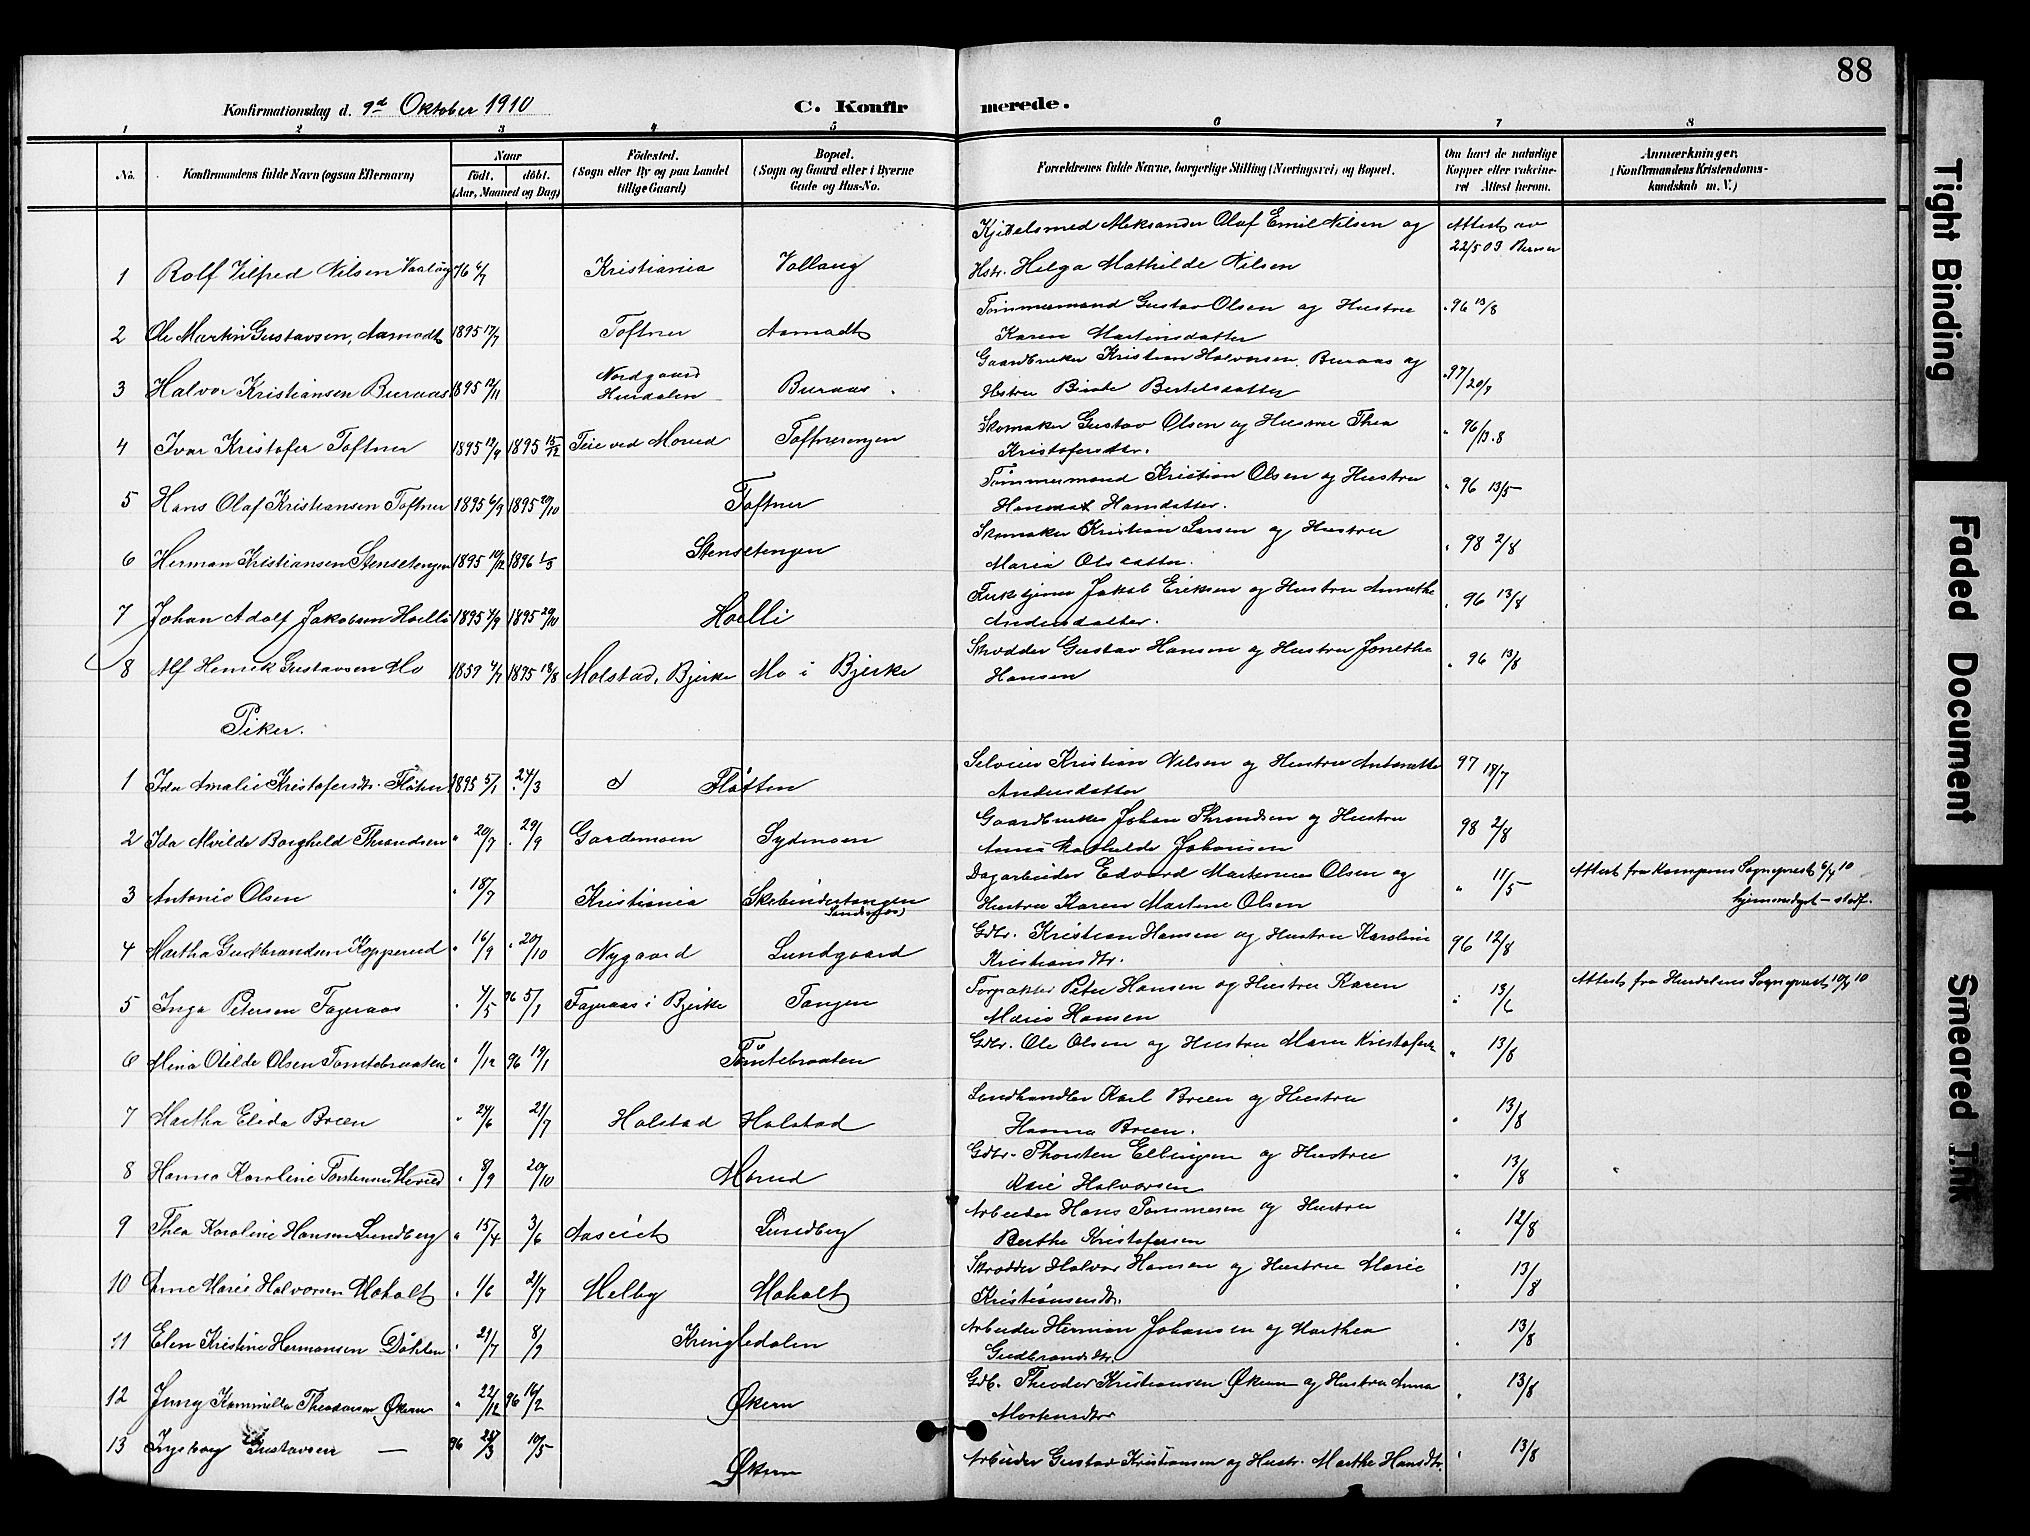 88
Konfirmationsdag d. 9d Oktober 1910
C. Konfirmerede.
1 2 3 4 5 6 7 8
No. Konfirmandens fulde Navn (ogsaa Efternavn) Naar født. døbt. (Aar, Maaned og Dag) Fødested. (Sogn eller By og paa Landet tillige Gaard) Bopæl. (Sogn og Gaard eller i Byerne Gade og Hus-No. Forældrenes fulde Navne, borgerlige Stilling (Næringsvei) og Bopæl. Om havt de naturlige Kopper eller vakcineret Attest herom. Anmærkninger. (Konfirmandens Kristendomskundskab m. V.)
1 Rolf Vilfred Nilsen Kristiania Vollaug Kjedelsmed Aleksander Olaf Emil Nilsen og Hstr. Helga Mathilde Nilsen Attest av 22/5 03
2 Ole Martin Gustavsen, Aamodt 1895 17/7 Toftner Aamodt Tømmermand Gustav Olsen og Hustru Karen Martinsdatter 96 13/8
3 Halvor Kristiansen Buraas 1895 12/11 Nordgaard Hurdalen Buraas Gaardbruker Kristian Halvorsen Buraas og Hstru Beate Bertelsdatter 97 20/8
4 Ivar Kristofer Toftner 1895 12/9 1895 15/12 Teie ved Morud Toftnerengen Skomaker Gustav Olsen og Hustru Thea Kristofersdtr. " 96 13.8
5 Hans Olaf Kristiansen Toftner 1895 6/9 1895 20/10 Toftner Tømmermand Kristian Olsen og Hustru Hansdatter. " 96 13/5
6 Herman Kristiansen Stensetengen 1895 10/12 1896 1/3 Stensetengen Skomaker Kristian Larsen og Hustru Maria Olsdatter. " 98 2/8
7 Johan Adolf Jakobsen Hoelli 1895 2/9 1895 20/10 Hoelli Jakob Eriksen og Hustru Annethe Andersdatter. " 96 13/8
8 Alf Henrik Gustavsen Mo 1859 4/7 1895 18/8 Molstad, Bjerke Mo i Bjerke Skrædder Gustav Hansen og Hustru Jonetha Hansen " 96 13/8
Piker.
1 Ida Amalie Kristofersdtr. Fløten 1895 5/1 24/3 Fløtten Kristian Nilsen og Hustru Antonette Andersdatter 97 18/7
2 Ida Alvilde Borghild Throndsen " 20/7 29/9 Gardemoen Sydmoen Gaardbruker Johan Throndsen og Hustru Anna Mathilde Johansen 98 2/8
3 Antonie Olsen " 18/7 Kristiania Skebindertangen Dagarbeider Edvard Marternius Olsen og Hustru Karen Martine Olsen " 11/5 Attest fra Kampens Sogneprest 6/4 10
4 Martha Gudbrandsen Kopperud " 16/9 " 20/10 Nygaard Lundgaard Gdbr. Kristian Hansen og Hustru Karoline Kristiansdtr. 96 12/8
5 Inga Petersen Fageraas " 4/5 96 5/1 Fageraas i Bjerke Tangen Forpakter Peter Hansen og Hustru Karen Marie Hansen " 13/6 Attest fra Hurdalens Sogneprest 10/4 10
6 Mina Otilde Olsen Tomtebraaten " 1/12 96 19/1 Tomtebraaten Gdbr. Ole Olsen og Hustru Maren Kristofersdtr " 13/8
7 Martha Elida Breen " 24/6 21/7 Holstad Holstad Landhandler Karl Breen og Hustru Hanna Breen. " 13/8
8 Hanna Karoline Torstensen Morud " 8/9 20/10 Morud Gdbr. Thorsten Ellingsen og Hustru Halvorsen " 13/8
9 Thea Karoline Hansen Lundberg " 15/4 3/6 Lundberg Arbeider Hans Tommesen og Hustru Berthe Kristofersen " 12/8
10 Anne Marie Halvorsen Moholt " 1/6 21/7 Melby Moholt Skrædder Halvor Hansen og Hustru Marie Kristiansendtr. " 13/8
11 Elen Kristine Hermansen Døhlen " 21/7 8/9 Kringledalen Arbeider Herman Johansen og Marthea Gudbrandsdtr. " 13/8
12 Jenny Kammilla Theodorsen Økern " 22/12 96 16/2 Økern Gdb. Theodor Kristiansen Økern og Hustru Anna Mortensdtr " 13/8
13 Ingeborg Gustavsen — 96 28/3 10/5 Økern Arbeider Gustav Kristiansen og Hustr. Marthe Hansdtr. " 13/8
Tight Binding
Faded Document
Smeared Ink